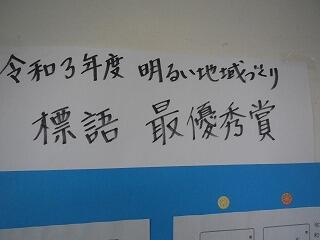 令和3年度 明るい地域づくり
標語 最優秀賞